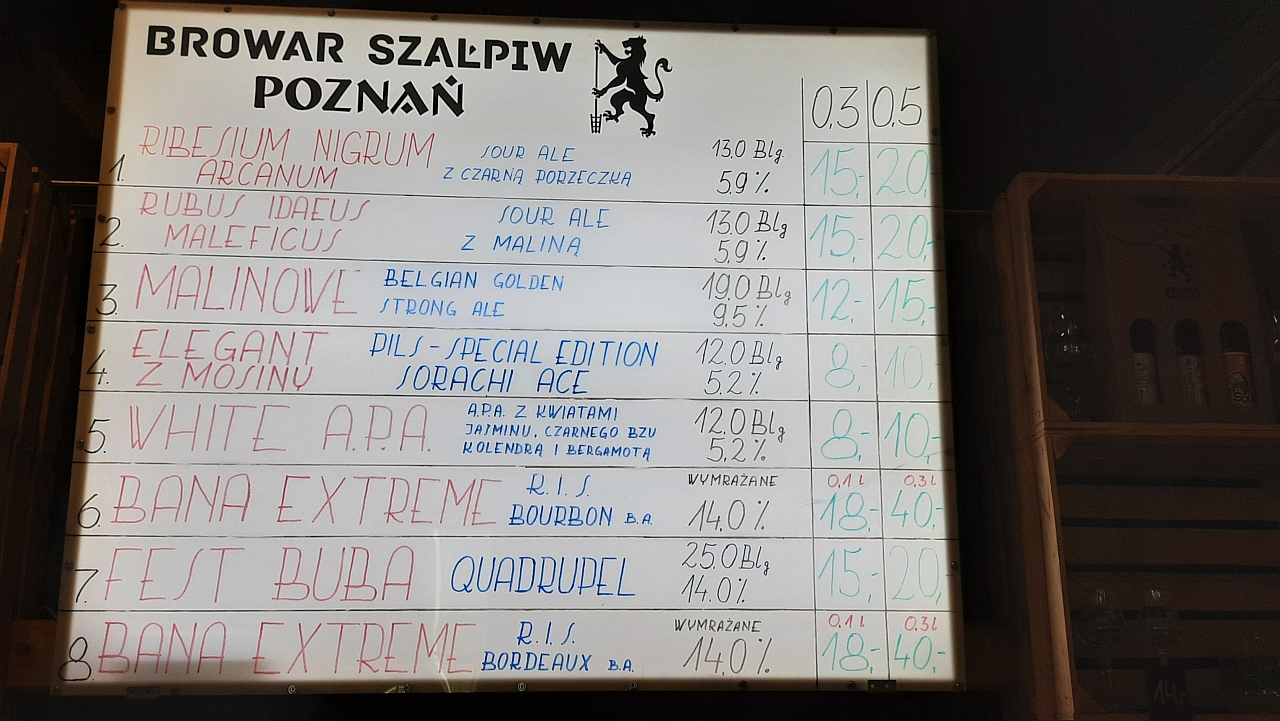 BROWAR SZAŁPIW
POZNAŃ
0,3 0,5
1. RIBESIUM NIGRUM ARCANUM SOUR ALE Z CZARNĄ PORZECZKĄ 13.0 Blg 5,9% 15,- 20,-
2. RUBUS IDAEUS MALEFICUS SOUR ALE Z MALINĄ 13.0 Blg 5,9% 15,- 20,-
3. MALINOWE BELGIAN GOLDEN STRONG ALE 19.0 Blg 9,5% 12,- 15,-
4. ELEGANT Z MOSINY PILS-SPECIAL EDITION SORACHI ACE 12.0 Blg 5.2% 8,- 10,-
5. WHITE A.P.A. A.P.A. Z KWIATAMI JAŚMINU, CZARNEGO BZU KOLENDRĄ I BERGAMOTĄ 12.0 Blg 5,2% 8,- 10,-
6. BANA EXTREME R.I.S. BOURBON B.A. WYMRAŻANE 14.0% 0,1 l 18,- 0,3 l 40,-
7. FEST BUBA QUADRUPEL 25.0 Blg 14.0% 15,- 20,-
8. BANA EXTREME R.I.S. BORDEAUX B.A. WYMRAŻANE 14,0% 0,1 l 18,- 0,3 l 40,-
14,-